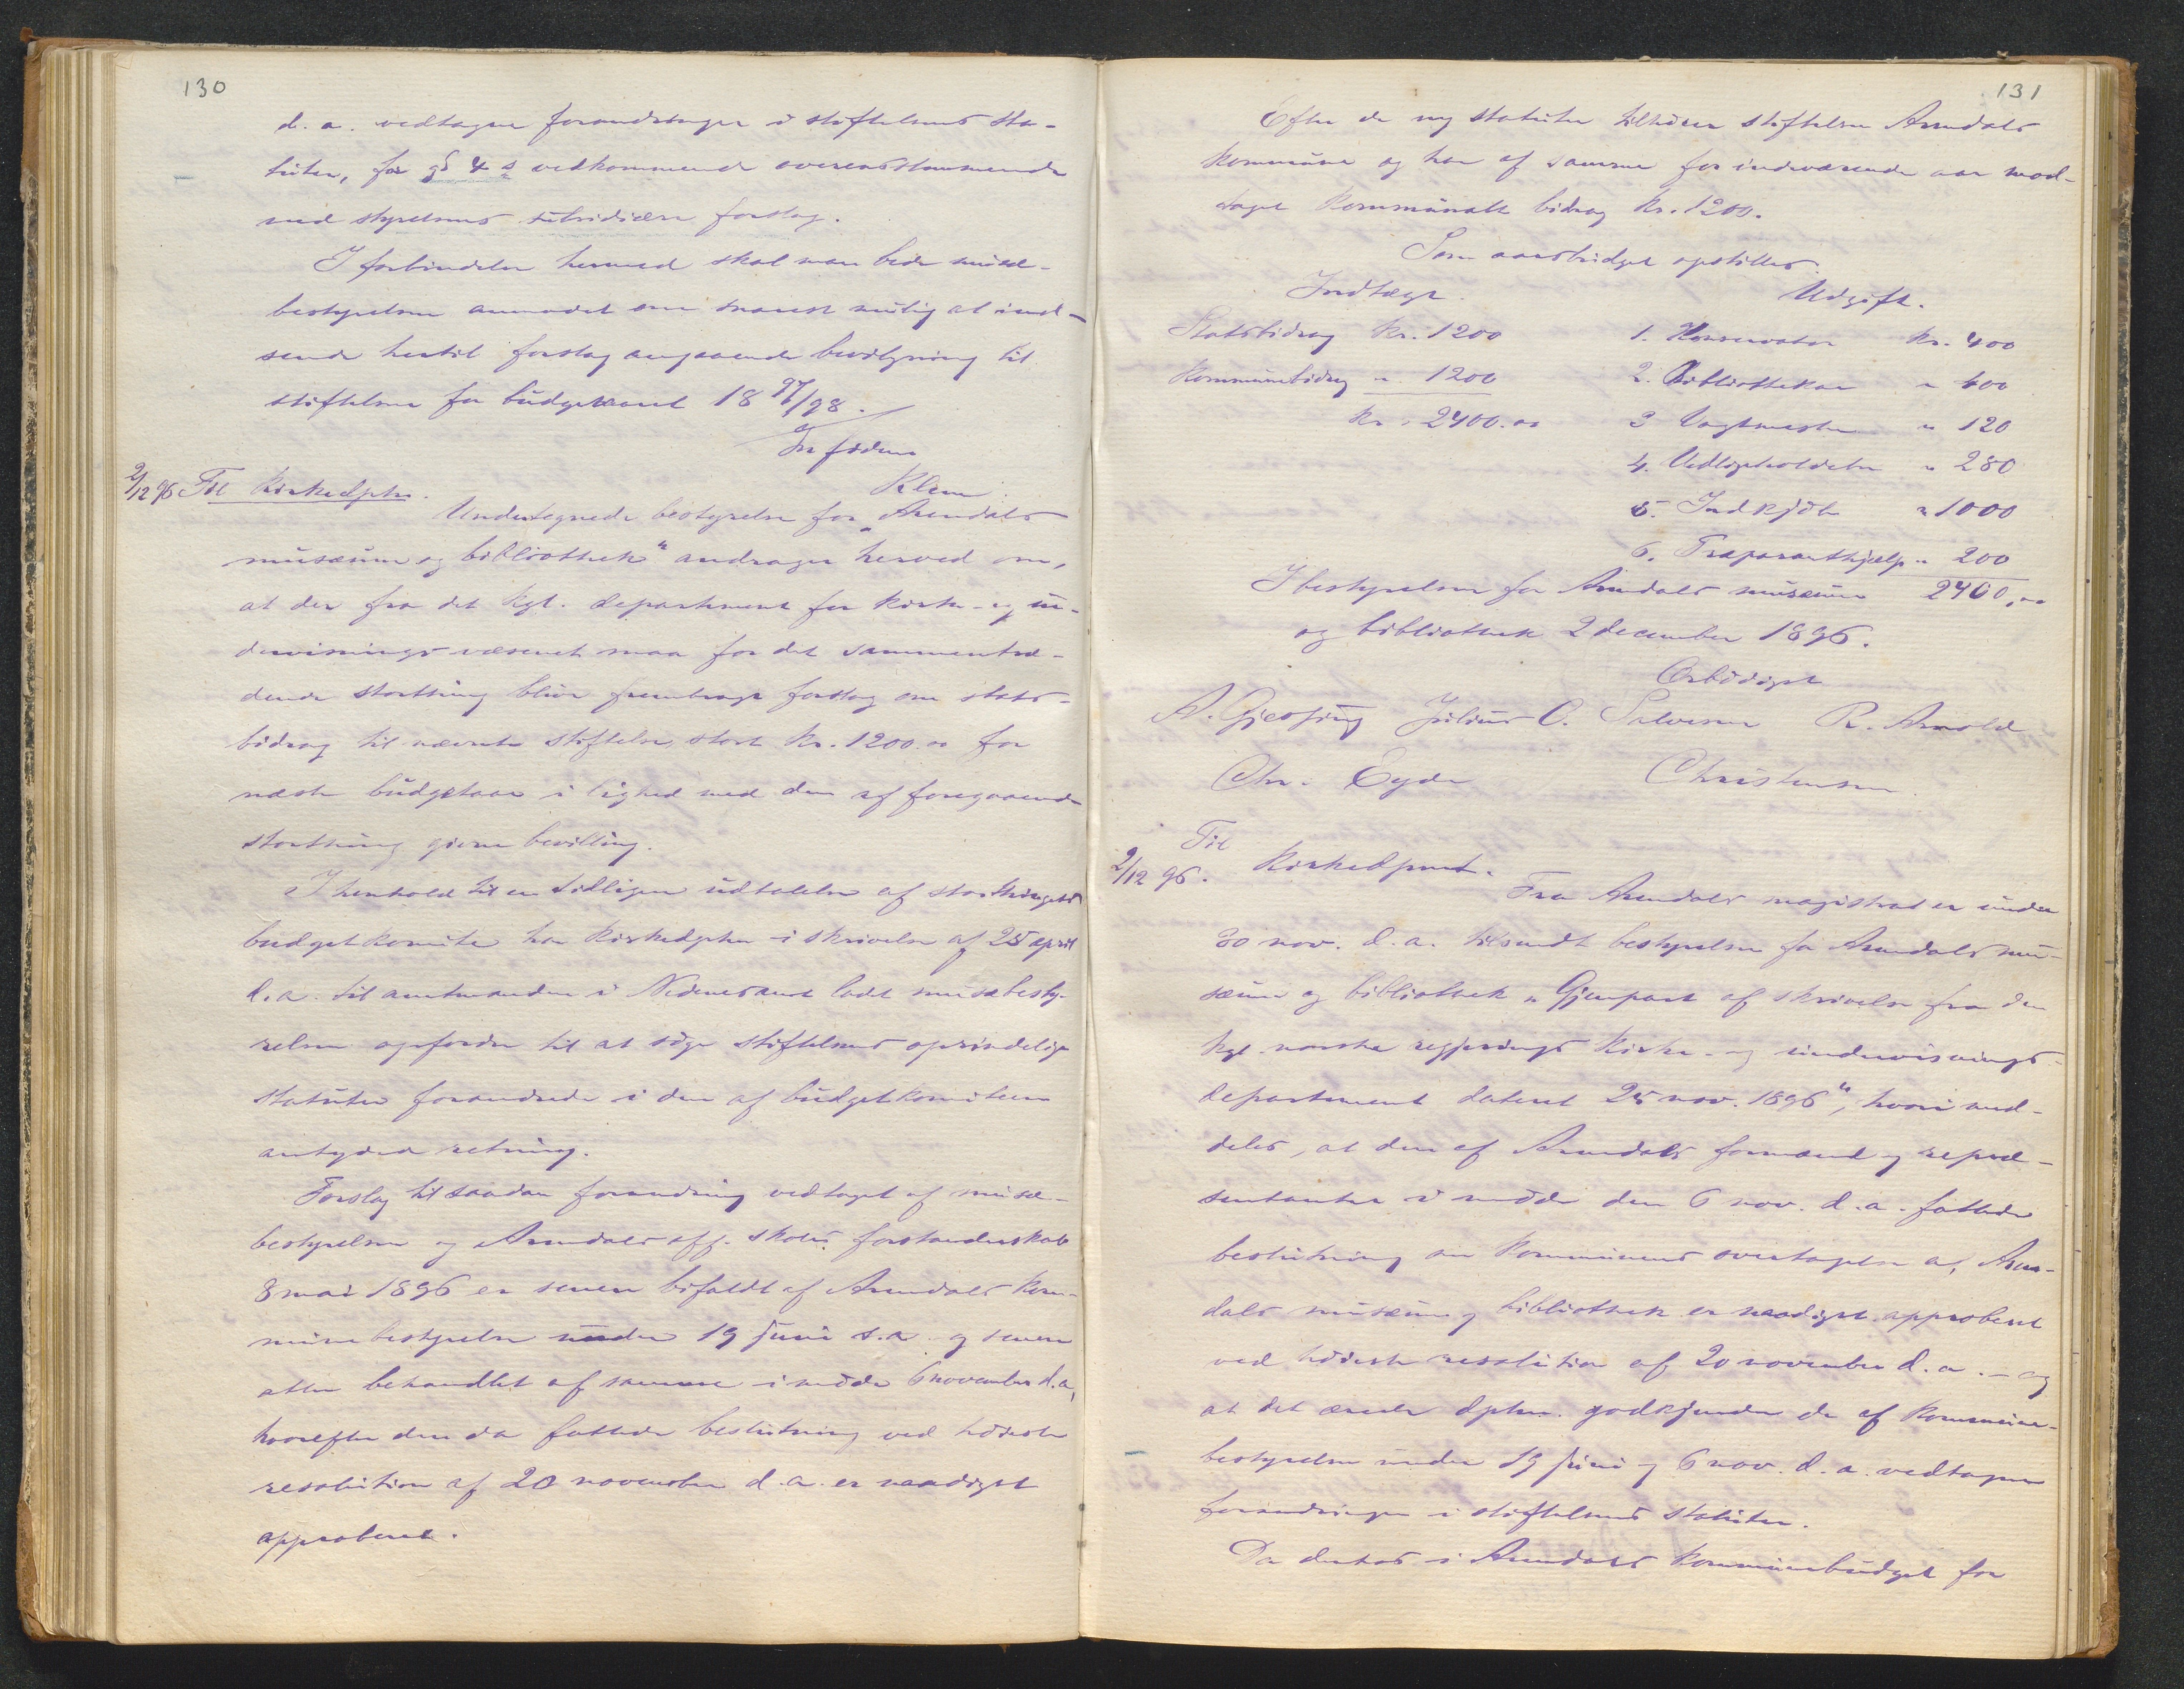 130
d. a. vedtagne forandringer i stiftelsens sta-
tuter, for § 4 s vedkommende overensstemmende
med styrelsens subsidiære forslag.
I forbindelse hermed skal man bede musæ-
bestyrelsen anmodet om snarest mulig at ind-
sende hertil forslag angaaende bevilgning til
stiftelsen for budgetaaret 18 97/98.
In fidem
Klem
2/12 96 Til Kirkedptr.
Undertegnede bestyrelse for „Arendals
musæum og bibliothek“ andrager herved om,
at der fra det kgl. departement for kirke- og un-
dervisningsvæsenet maa for det sammentræ-
dende storthing blive fremdraget forslag om stats-
bidrag til nævnte stiftelse stort kr. 1200.00 for
næste budgetaar i lighed med den af foregaaende
storthing givne bevilling.
I henhold til en tidligere udtalelse af storthingets
budgetkomite har kirkedptr i skrivelse af 25 april
d. a. til amtmanden i Nedenes amt ladt musæbesty-
relsen opfordre til at søge stiftelsens oprindelige
statuter forandrede i den af budgetkomiteen
antydede retning.
Forslag til saadan forandring vedtaget af musæ-
bestyrelsen og Arendals off. skoles forstanderskab
8 mai 1896 er senere bifaldt af Arendals kom-
munebestyrelse under 19 juni s. a. og senere
atter behandlet af samme i møde 6 november d. a,
hvorefter den da fattede beslutning ved høieste
resolution af 20 november d. a. er naadigst
approberet.
131
Efter de ny statuter tilhører stiftelsen Arendals
kommune og har af samme for indeværende aar mod-
taget kommunalt bidrag kr. 1200.
Som aarsbudget opstilles:
Indtægt. Udgift.
Statsbidrag kr. 1200 1. Konservator kr. 400
Kommunebidrag „ 1200 2. Bibliothekar „ 400
kr. 2400.00 3 Vagtmester „ 120
4. Vedligeholdelse „ 280
5. Indkjøb „ 1000
6. Præparanthjælp „ 200
I bestyrelsen for Arendals musæum 2400,00
og bibliothek 2 december 1896.
Ærbødigst
A. Gjessing Julius C. Salvesen R. Arnold
Chr. Eyde Christensen
Til
2/12 96. Kirkedpmt.
Fra Arendals magistrat er under
30 nov. d. a. tilsendt bestyrelsen for Arendals mu-
sæum og bibliothek „Gjenpart af skrivelse fra den
kgl. norske regjerings kirke- og undervisnings-
departement dateret 25 nov. 1896“, hvori med-
deles, at den af Arendals formænd og repræ-
sentanter i møde den 6 nov. d. a. fattede
beslutning om kommunens overtagelse af Aren-
dals musæum og bibliothek er naadigst approberet
ved høieste resolution af 20 november d. a. – og
at det ærede dptm. godkjender de af kommune-
bestyrelsen under 19 juni og 6 nov. d. a. vedtagne
forandringer i stiftelsens statuter.
Da der i Arendals kommunebudget for